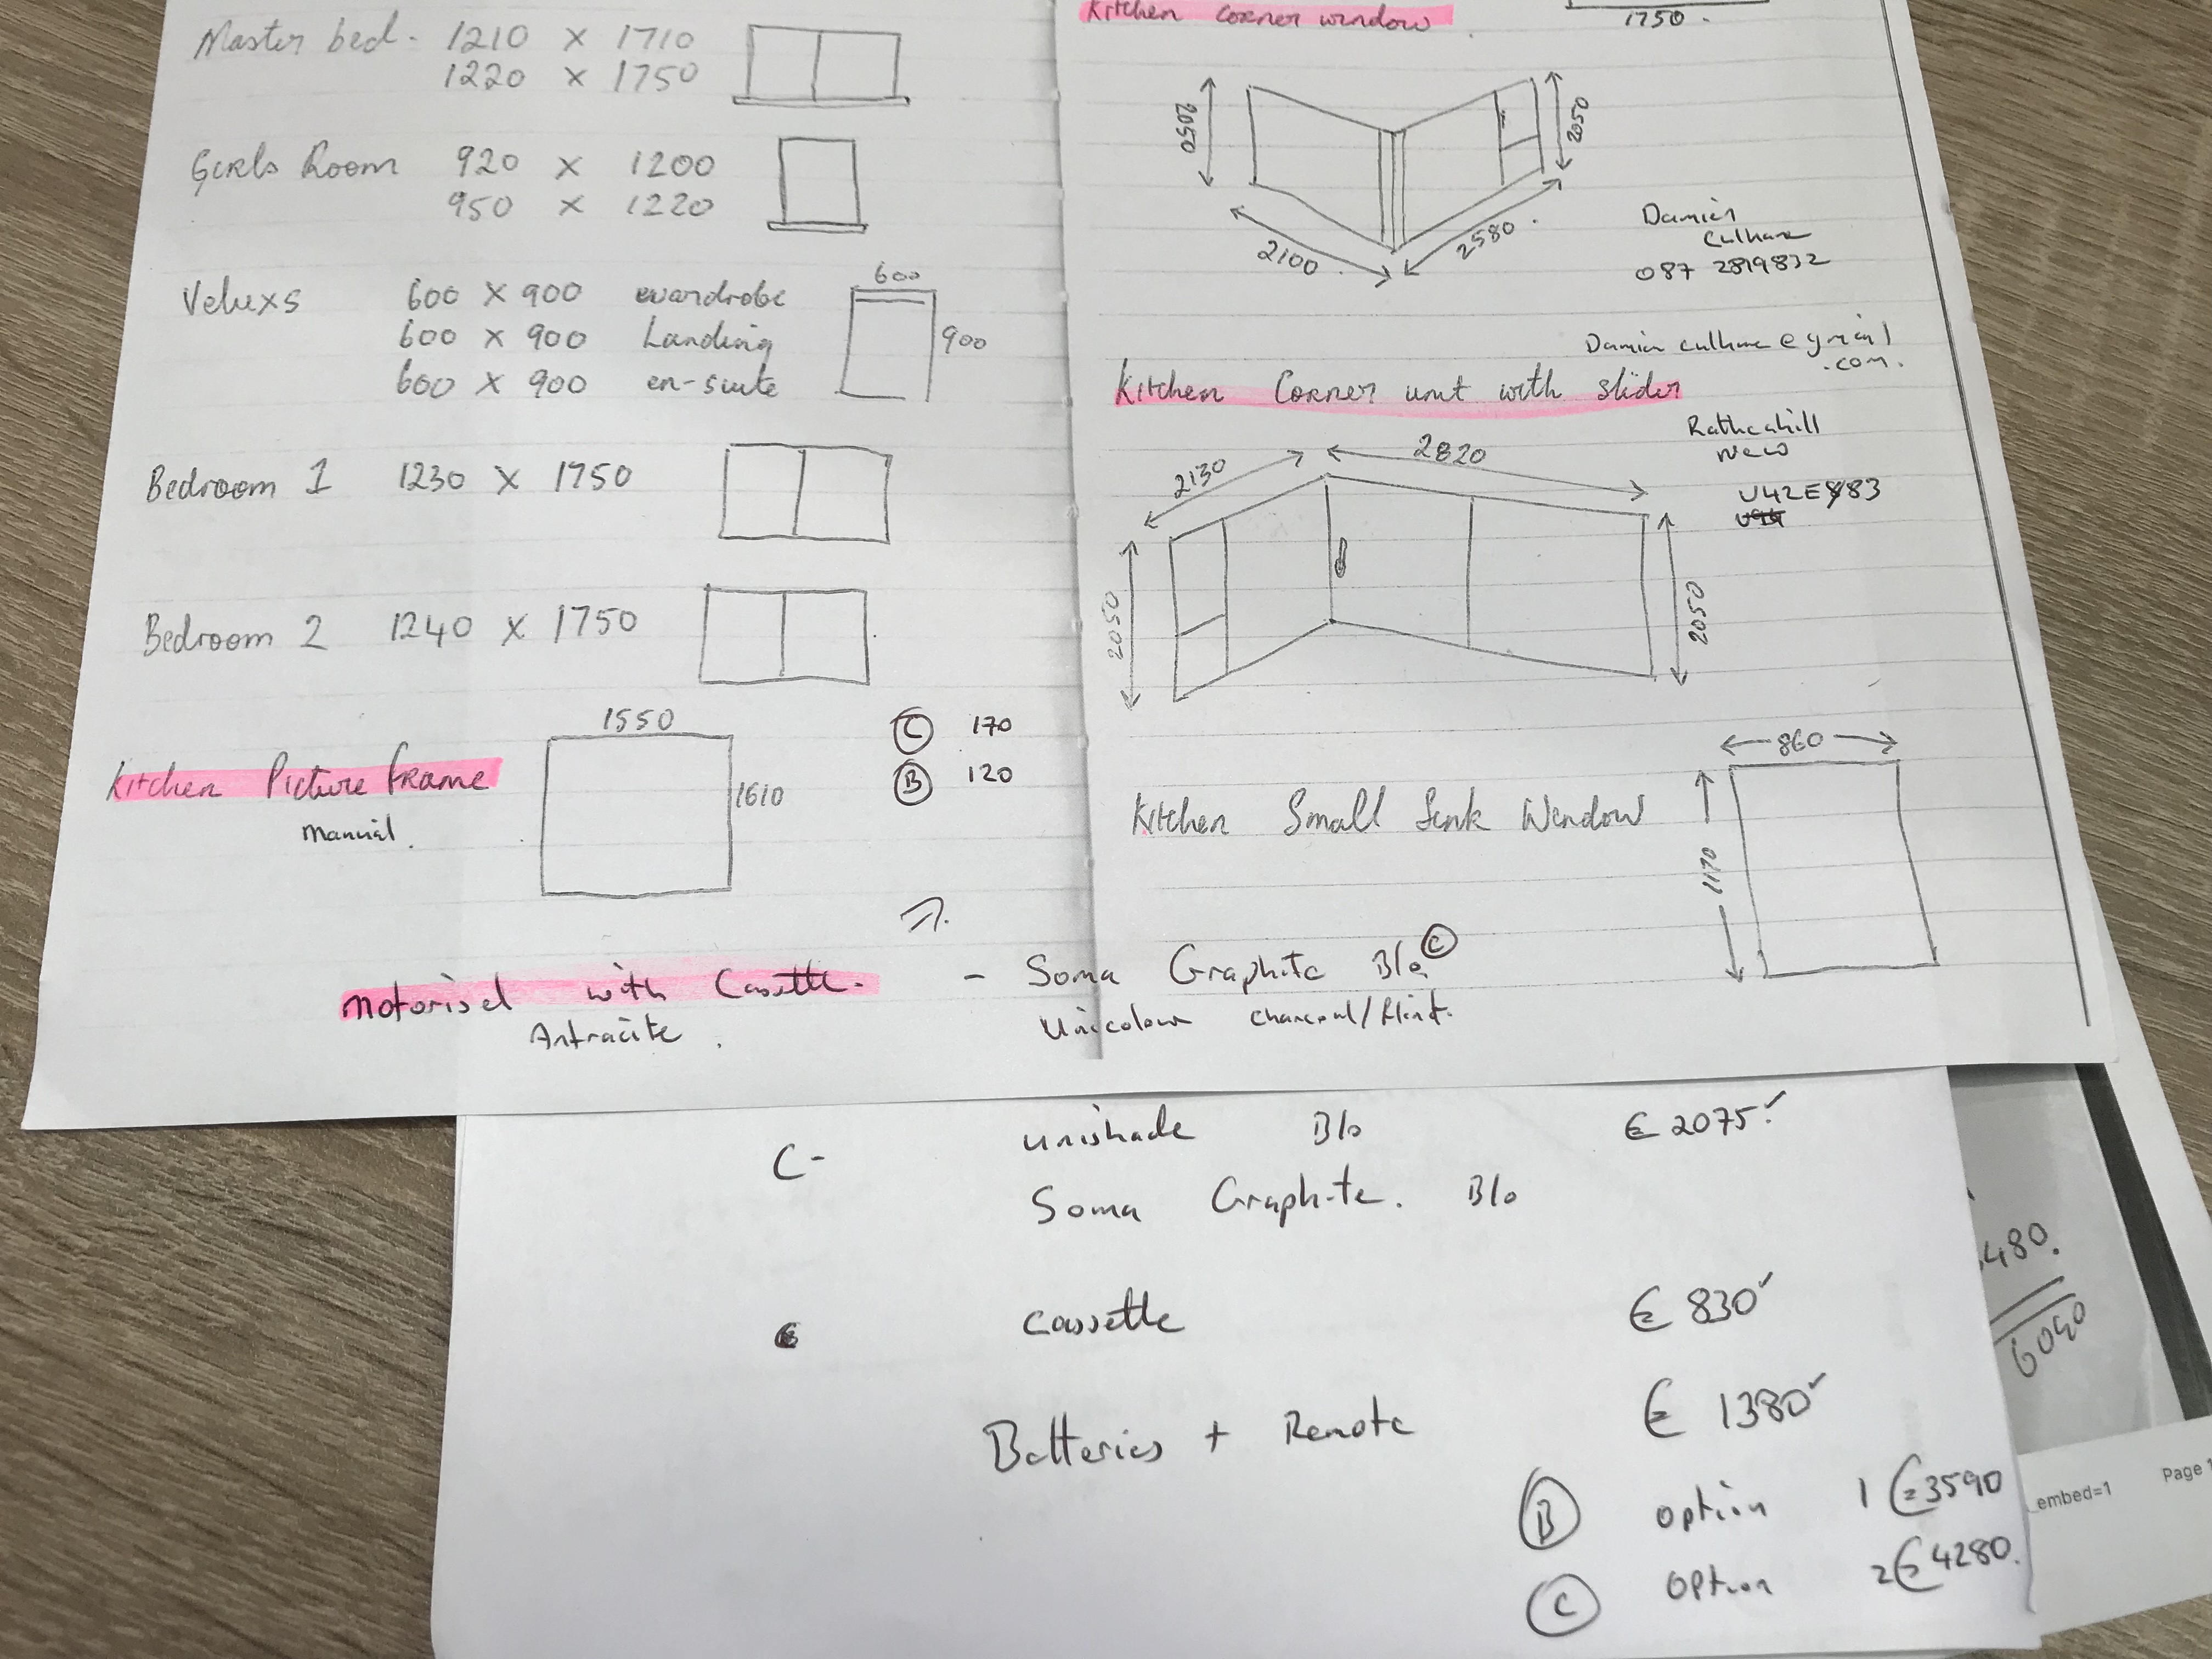 Master bed. 1210 x 1710
1220 x 1750
Girls Room 920 x 1200
950 x 1220
Veluxs 600 x 900 wardrobe
600 x 900 Landing
600 x 900 en-suite
600
900
Bedroom 1 1230 x 1750
Bedroom 2 1240 x 1750
Kitchen Picture Frame
Manual.
1550
1610
C 170
B 120
Motorised with Cassette.
Antracite.
Kitchen corner window
1750.
2050
2050
2100.
2580.
Damien
087 2819832
.com.
Kitchen Corner unit with slider
New
2130
2820
2050
2050
Kitchen Small Sink Window
860
1170
- Soma Graphite Blo C
Unicolour charcoal/flint.
C- unishade Blo € 2075
Soma Graphite. Blo
Cassette € 830
Batteries + Remote € 1380
B option 1 €3590
C option 2 €4280.
480.
6090
_embed=1
Page 1